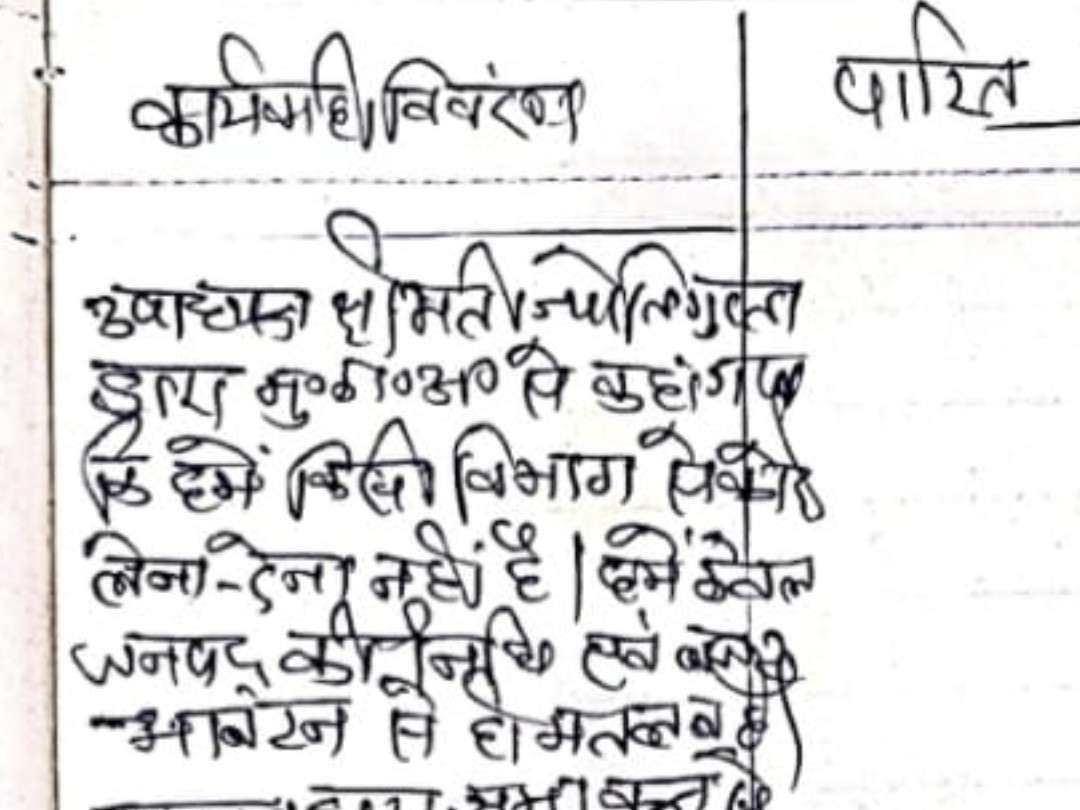 कार्यवाही विवरण
पारित
उपाध्यक्ष श्रीमती ज्योति गुप्ता
द्वारा मु०का०अ० से कहा गया
कि हमें किसी विभाग से कोई
लेना-देना नहीं है। हमें केवल
जनपद की निधि एवं
आवंटन से ही मतलब है